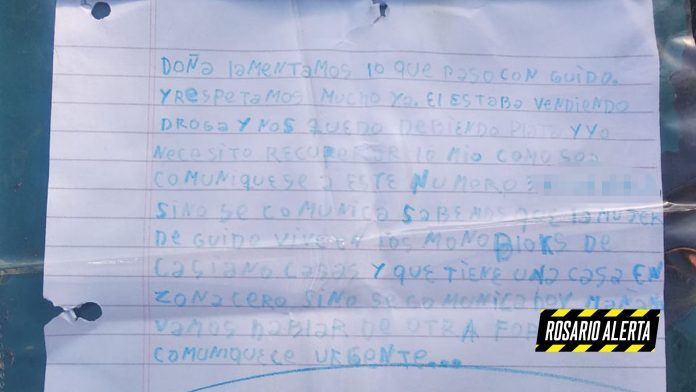 DOÑA LAMENTAMOS LO QUE PASO CON GUIDO.
Y RESPETAMOS MUCHO YA. El ESTABA VENDIENDO
DROGA Y NOS QUEDO DEBIENDO PLATA Y YO
NECESITO RECUPERAR lO MIO COMO SEA
COMUNIQUESE A ESTE NUMERO
SINO SE COMUNICA SABEMOS QUE LA MUJER
DE GUIDO VIVE EN LOS MONOBloKS DE
CASIANO CASAS Y QUE TIENE UNA CASA EN
ZONA CERO SINO SE COMUNICA HOY MAÑANA
VAMOS HABLAR DE OTRA
COMUNIQUECE URGENTE...
ROSARIO ALERTA